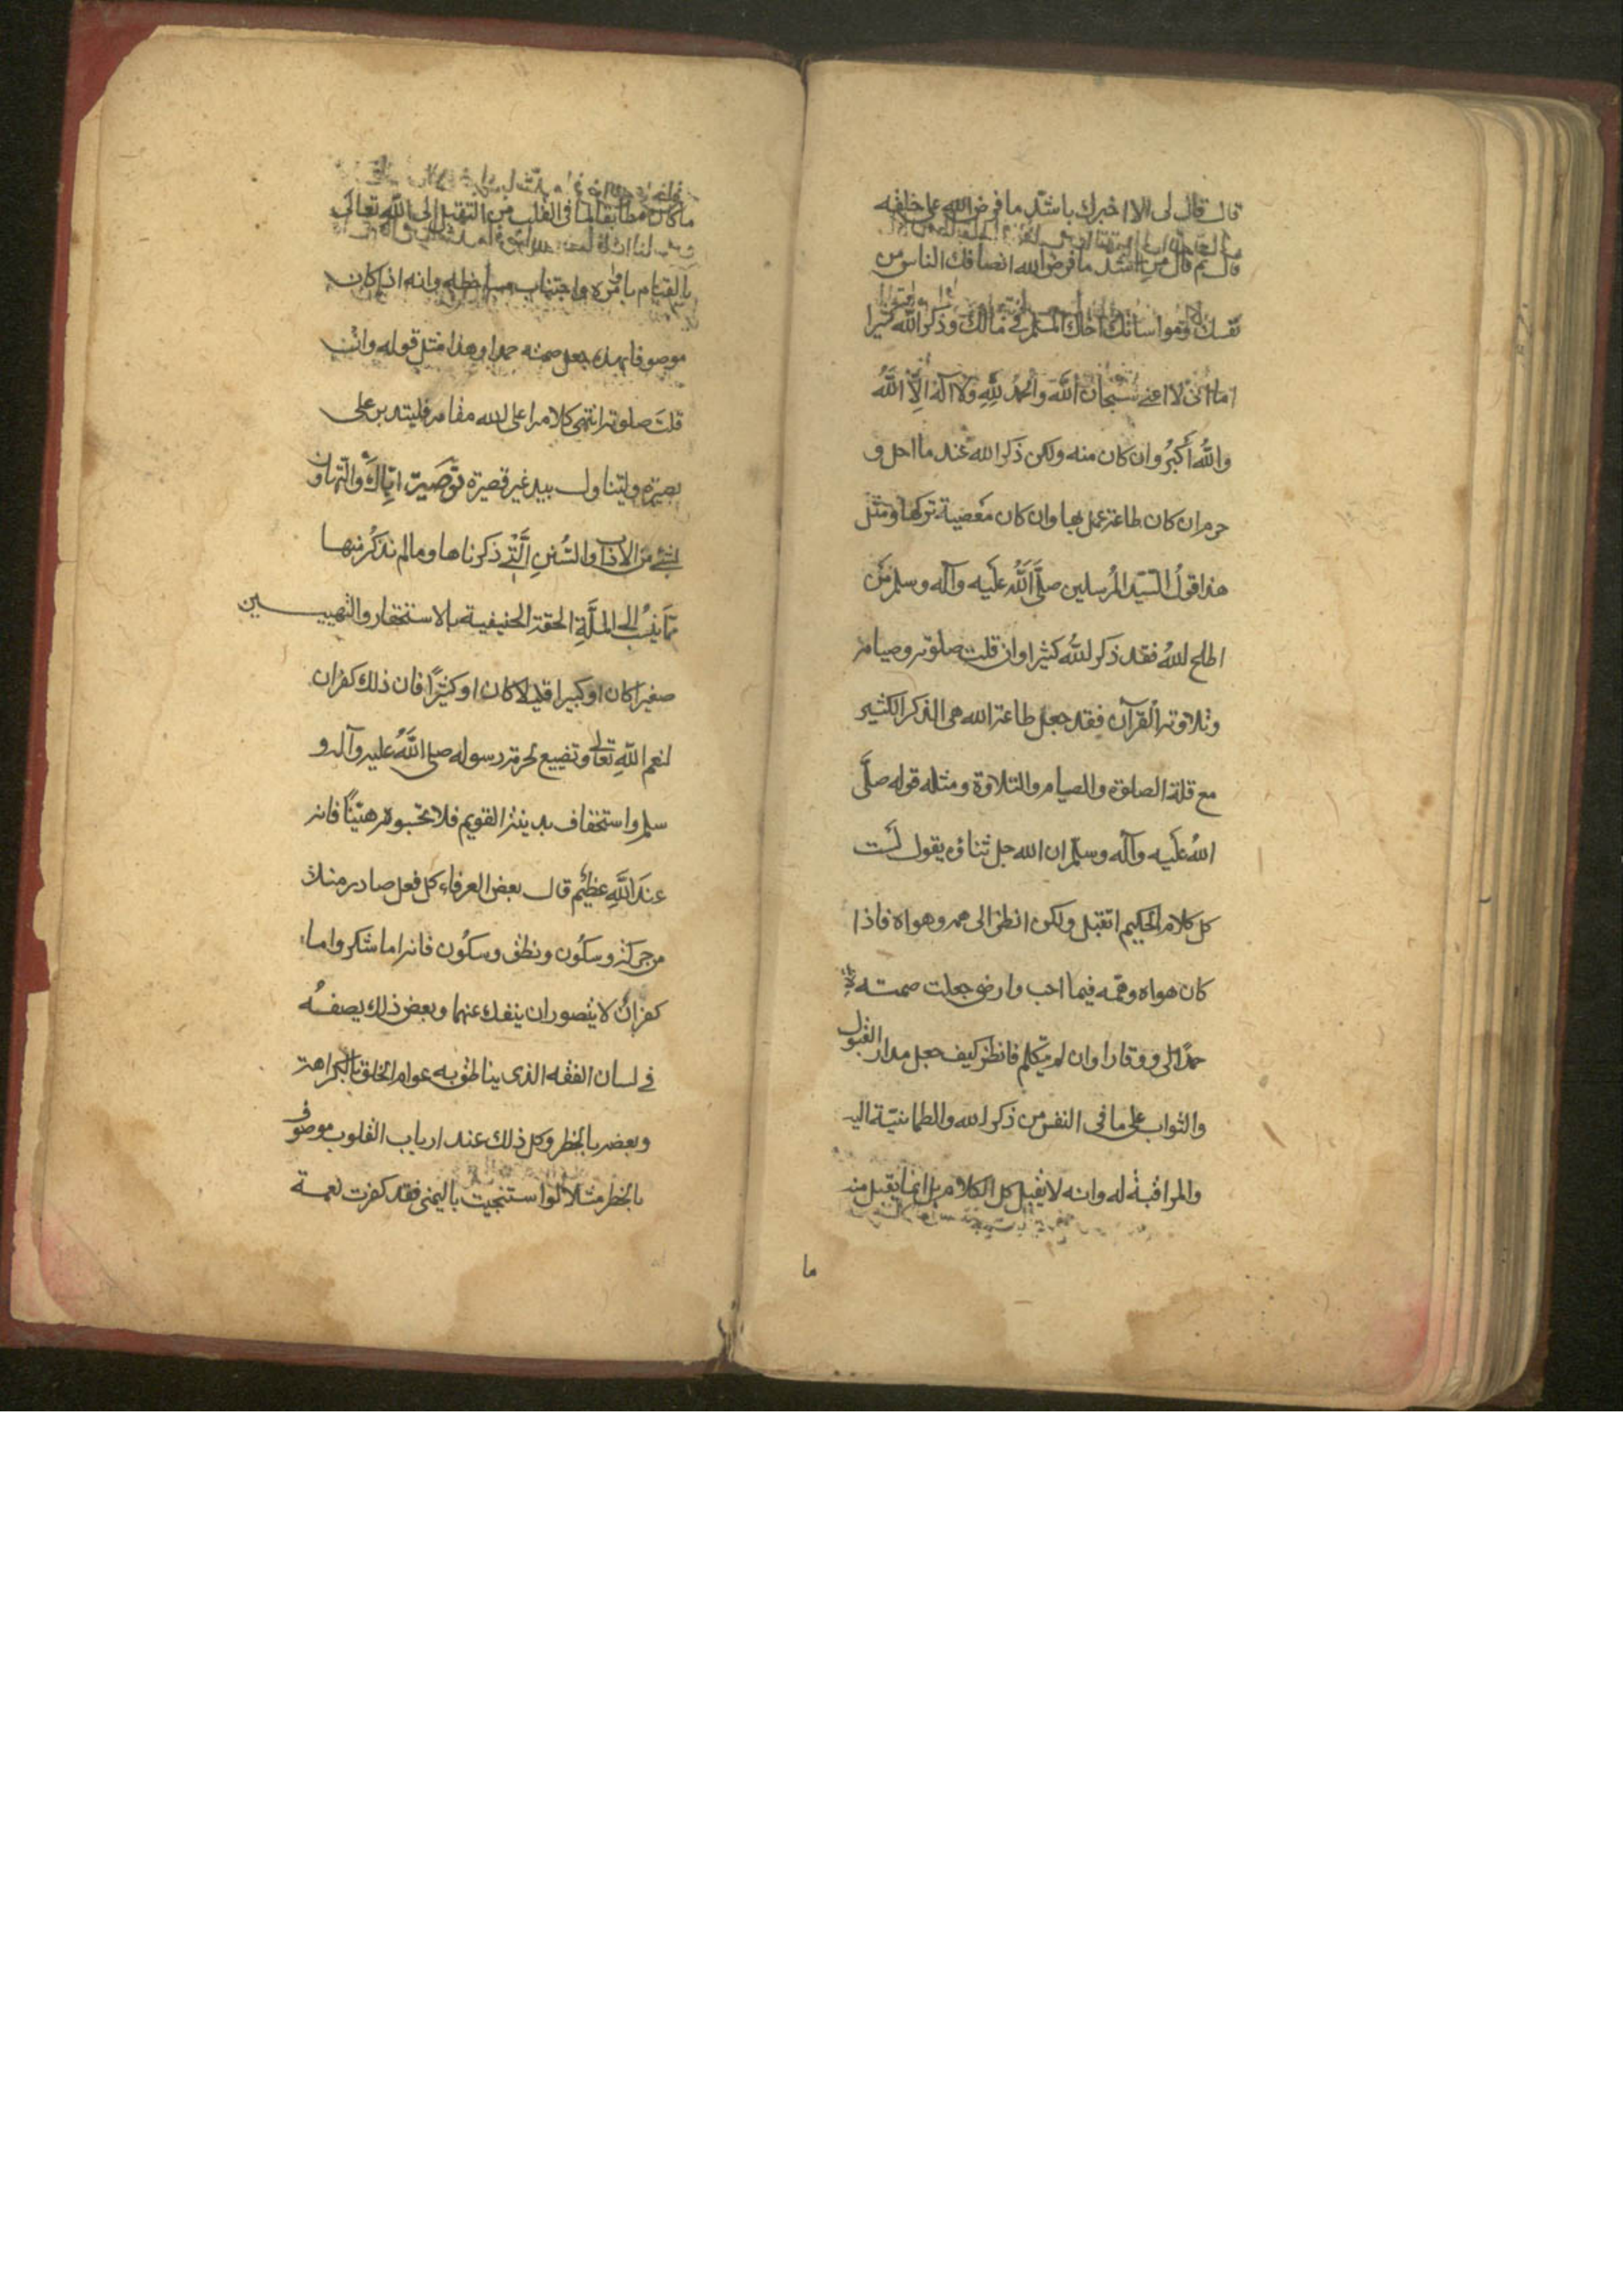 قال قال لى الا اخبرك باشد ما فرض الله على خلقه
قال نعم قال من اشد ما فرض الله انصافك الناس من
نفسك ومواساتك اخاك المسلم فى مالك وذكر الله كثيرا
اما انى لا اعنى سُبْحَان اللَّه وَالحمدُ لِلَّهِ وَلا اله اِلَّا اللَّهُ
واللهُ أكبرُ وان كان منه ولكن ذكر الله عند ما احل و
حرم ان كان طاعة عمل بها وان كان معصية تركها ومثل
هذا قولُ السّيّد المُرسلين صلَّى اللَّه عَليه وآله وسلم مَن
اطاع اللهُ فقد ذكر اللهُ كثيرا وان قلت صلوته وصيامه
وتلاوته القرآن فقد جعل طاعة الله هى الذكر الكثير
مع قلة الصلوة والصيام والتلاوة ومثله قوله صلَّى
اللهُ عَليه وآله وسلّم ان الله جل ثناؤه يقول لَست
كل كلام الحكيم اتقبل ولكن انظر الى همه وهواه فاذا
كان هواه وهمّه فيما احب وارضى جعلت صمته
حمدًا لى ووقارا وان لم يتكلم فانظر كيف جعل مدار القبول
والثواب على ما فى النفس من ذكر الله والطمانيّة اليه
والمراقبة له وانه لا يقبل كل الكلام بل انما يقبل منه
ما
ما كان مطابقا لما فى القلب من التقبل الى اللَّه تعالى
بالقيام بامره واجتناب مساخطه وانه اذا كان
موصوفا بهذا جعل صمته حمدا وهذا مثل قوله وانْ
قلت صلوته انتهى كلامه اعلى الله مقامه فليتدبر على
بصيرة وليتناول بيد غير قصيرة تَوْصيَة ايّاكَ والتّهاون
بشئ من الاداب والسُّننِ الَّتى ذكرناها وما لم نذكُر منها
ممّا ينسبُ الى الملَّةِ الحقة الحنيفية بالاستحقار والتهيين
صغيرا كان او كبيرا قليلا كان او كثيرًا فان ذلك كفران
لنعم اللَّهِ تعالى وتضييع لحرمة رسوله صلى اللَّهُ عليه وآله و
سلم واستخفاف بدينه القويم فلا تحسبوه هيّنًا فانه
عندَ اللَّهِ عظيم قال بعض العرفاء كل فعل صادر منك
من حركة وسكُون ونطق وسكُون فانه اما شكر واما
كفران لا يتصور ان ينفك عنهما وبعض ذلك يصفُه
فى لسان الفقه الذى يناطق به عوام الخلق بالكراهة
وبعضه بالحظر وكل ذلك عند ارباب القلوب موصوف
بالحظر مثلا لو استنجيت باليمنى فقد كفرت نعمة